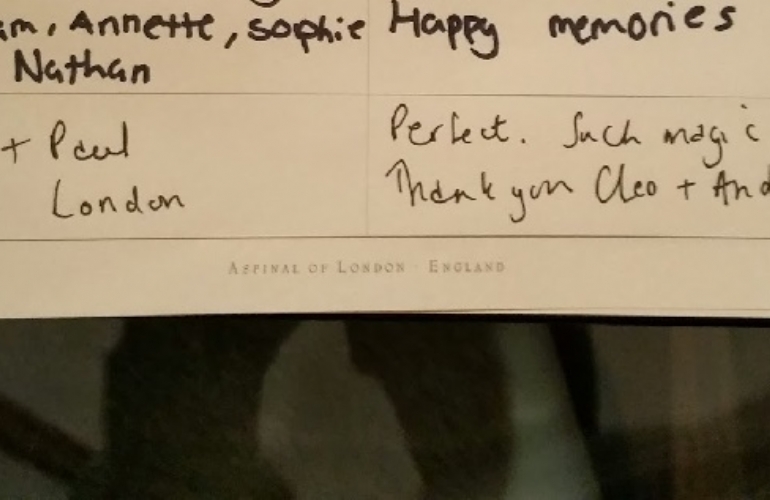 Annette, Sophie
Nathan
Happy memories
+ Paul
London
Perfect. Such magic
Thank you Cleo + And
ASPINAL OF LONDON · ENGLAND